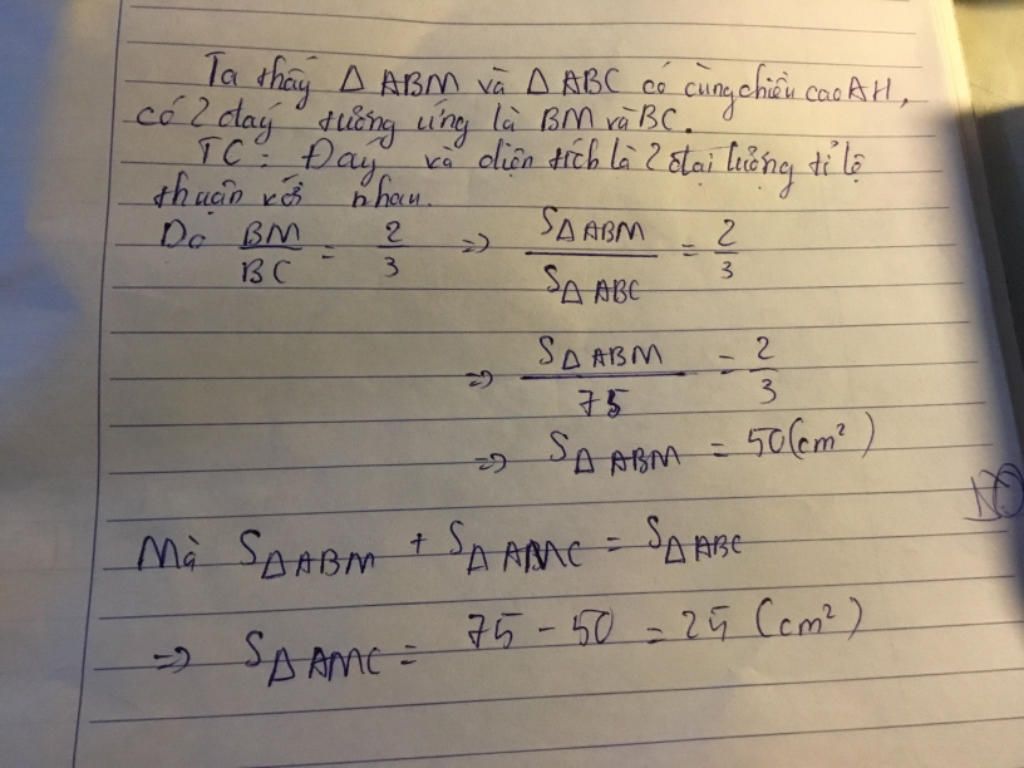 Ta thấy Δ ABM và Δ ABC có cùng chiều cao AH,
có 2 đáy tương ứng là BM và BC.
TC: Đáy và diện tích là 2 đại lượng tỉ lệ
thuận với nhau.
Do BM/BC = 2/3 => SΔ ABM / SΔ ABC = 2/3
=> SΔ ABM / 75 = 2/3
=> SΔ ABM = 50 (cm²)
Mà SΔ ABM + SΔ AMC = SΔ ABC
=> SΔ AMC = 75 - 50 = 25 (cm²)